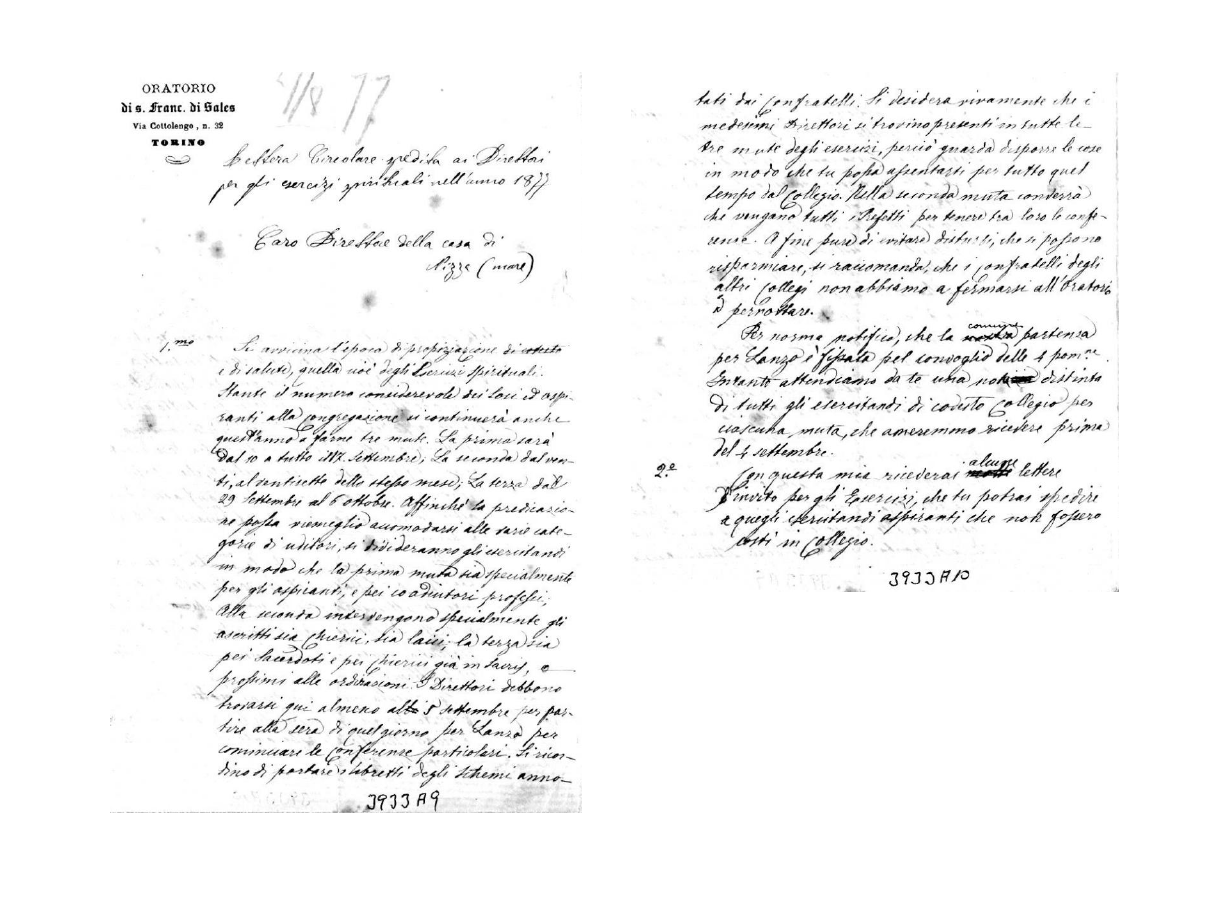 ORATORIO
di s. Franc. di Sales
Via Cottolengo, n. 32
TORINO
4/8 77
Lettera Circolare spedita ai Direttori
per gli esercizi spirituali nell'anno 1877
Caro Direttore della casa di
Nizza (mare)
1.mo Si avvicina l'epoca di propiziazione di
e di salute, quella cioè degli Esercizi Spirituali.
Stante il numero considerevole dei Soci ed aspi-
ranti alla Congregazione si continuerà anche
quest'anno a farne tre mute. La prima sarà
dal 10 a tutto il 17 Settembre; La seconda dal ven-
ti, al ventisette dello stesso mese; La terza dal
29 Settembre al 6 ottobre. Affinché la predicazio-
ne possa viemeglio accomodarsi alle varie cate-
gorie di uditori, si divideranno gli esercitandi
in modo che la prima muta sia specialmente
per gli aspiranti, e pei coadiutori professi;
Alla seconda intervengono specialmente gli
ascritti sia Chierici, sia laici; la terza sia
pei Sacerdoti e pei Chierici già in Sacris, o
prossimi alle ordinazioni. I Direttori debbono
trovarsi qui almeno alli 5 settembre per par-
tire alla sera di quel giorno per Lanzo per
cominciare le Conferenze particolari. Si ricor-
dino di portare i libretti degli Schemi anno-
3933A9
tati dai Confratelli. Si desidera vivamente che i
medesimi Direttori si trovino presenti in tutte le
tre mute degli esercizi, perciò guarda disporre le cose
in modo che tu possa assentarti per tutto quel
tempo dal Collegio. Nella seconda muta converrà
che vengano tutti i Prefetti per tenere tra loro le confe-
renze. A fine pure di evitare disturbi, che si possono
risparmiare, si raccomanda, che i confratelli degli
altri Collegi non abbiamo a fermarsi all'Oratorio
a pernottare.
Per norma notifico, che la comune partenza
per Lanzo è fissata pel convoglio delle 4 pom.ne
Intanto attendiamo da te una nota distinta
di tutti gli esercitandi di codesto Collegio per
ciascuna muta, che ameremmo ricevere prima
del 4 settembre.
2.o Con questa mia riceverai alcune lettere
d'invito per gli Esercizi, che tu potrai spedire
a quegli esercitandi aspiranti che non fossero
costì in Collegio.
3933A10